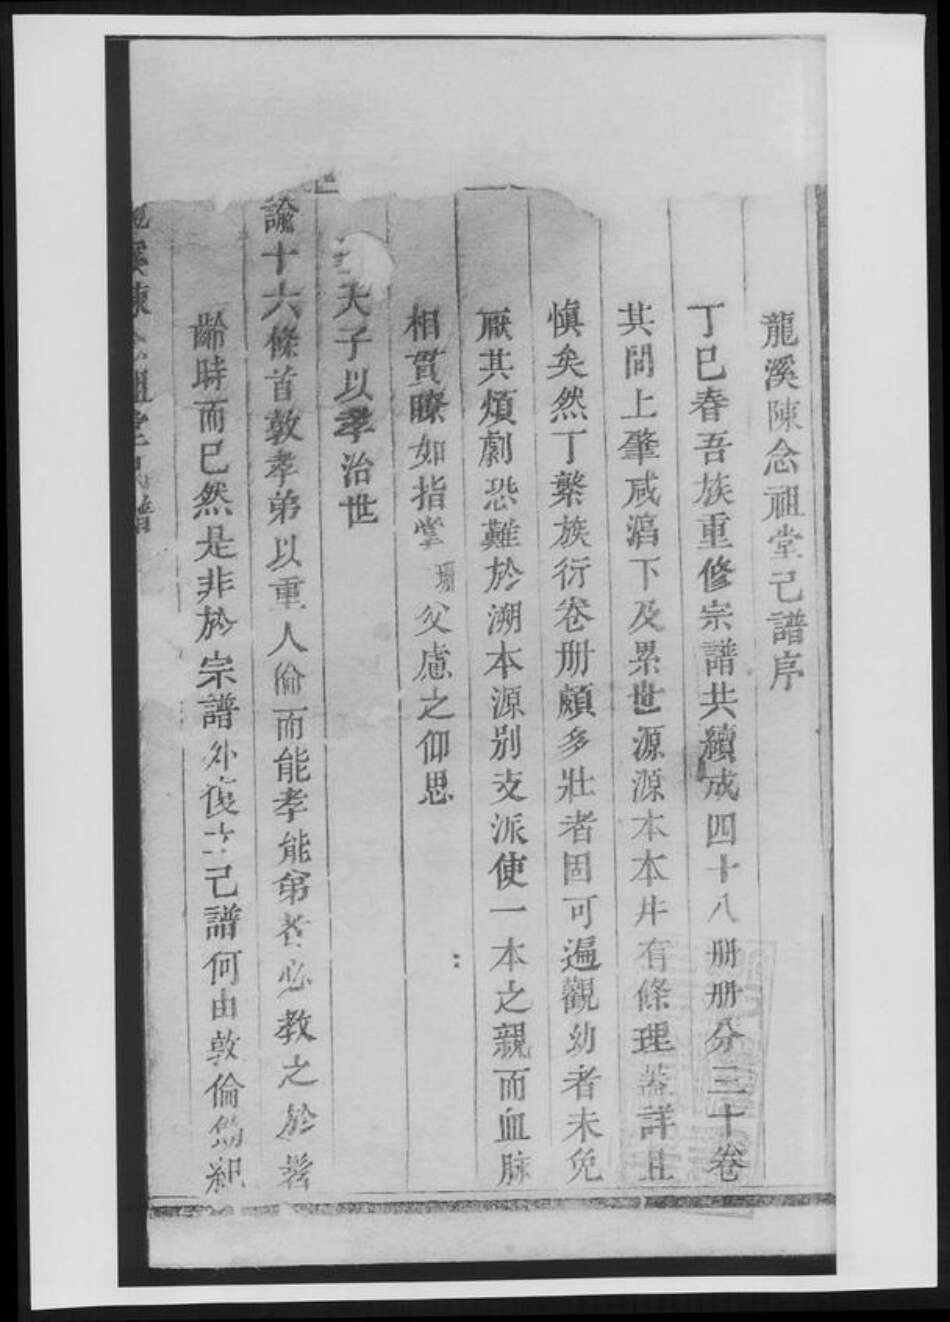 龍溪陳念祖堂己譜序
丁巳春吾族重修宗譜共續成四十八册册分三十卷
其間上肇咸濄下及累世源源本本井有條理蓋詳且
愼矣然丁繁族衍卷册頗多壯者固可遍觀幼者未免
厭其煩劇恐難於溯本源别支派使一本之親而血脉
相貫瞭如指掌 珊父慮之仰思
夫子以孝治世
諭十六條首敦孝弟以重人倫而能孝能弟者必教之於髫
齡時而已然是非於宗譜外復立己譜何由敦倫飭紀
溪陳念祖堂己譜